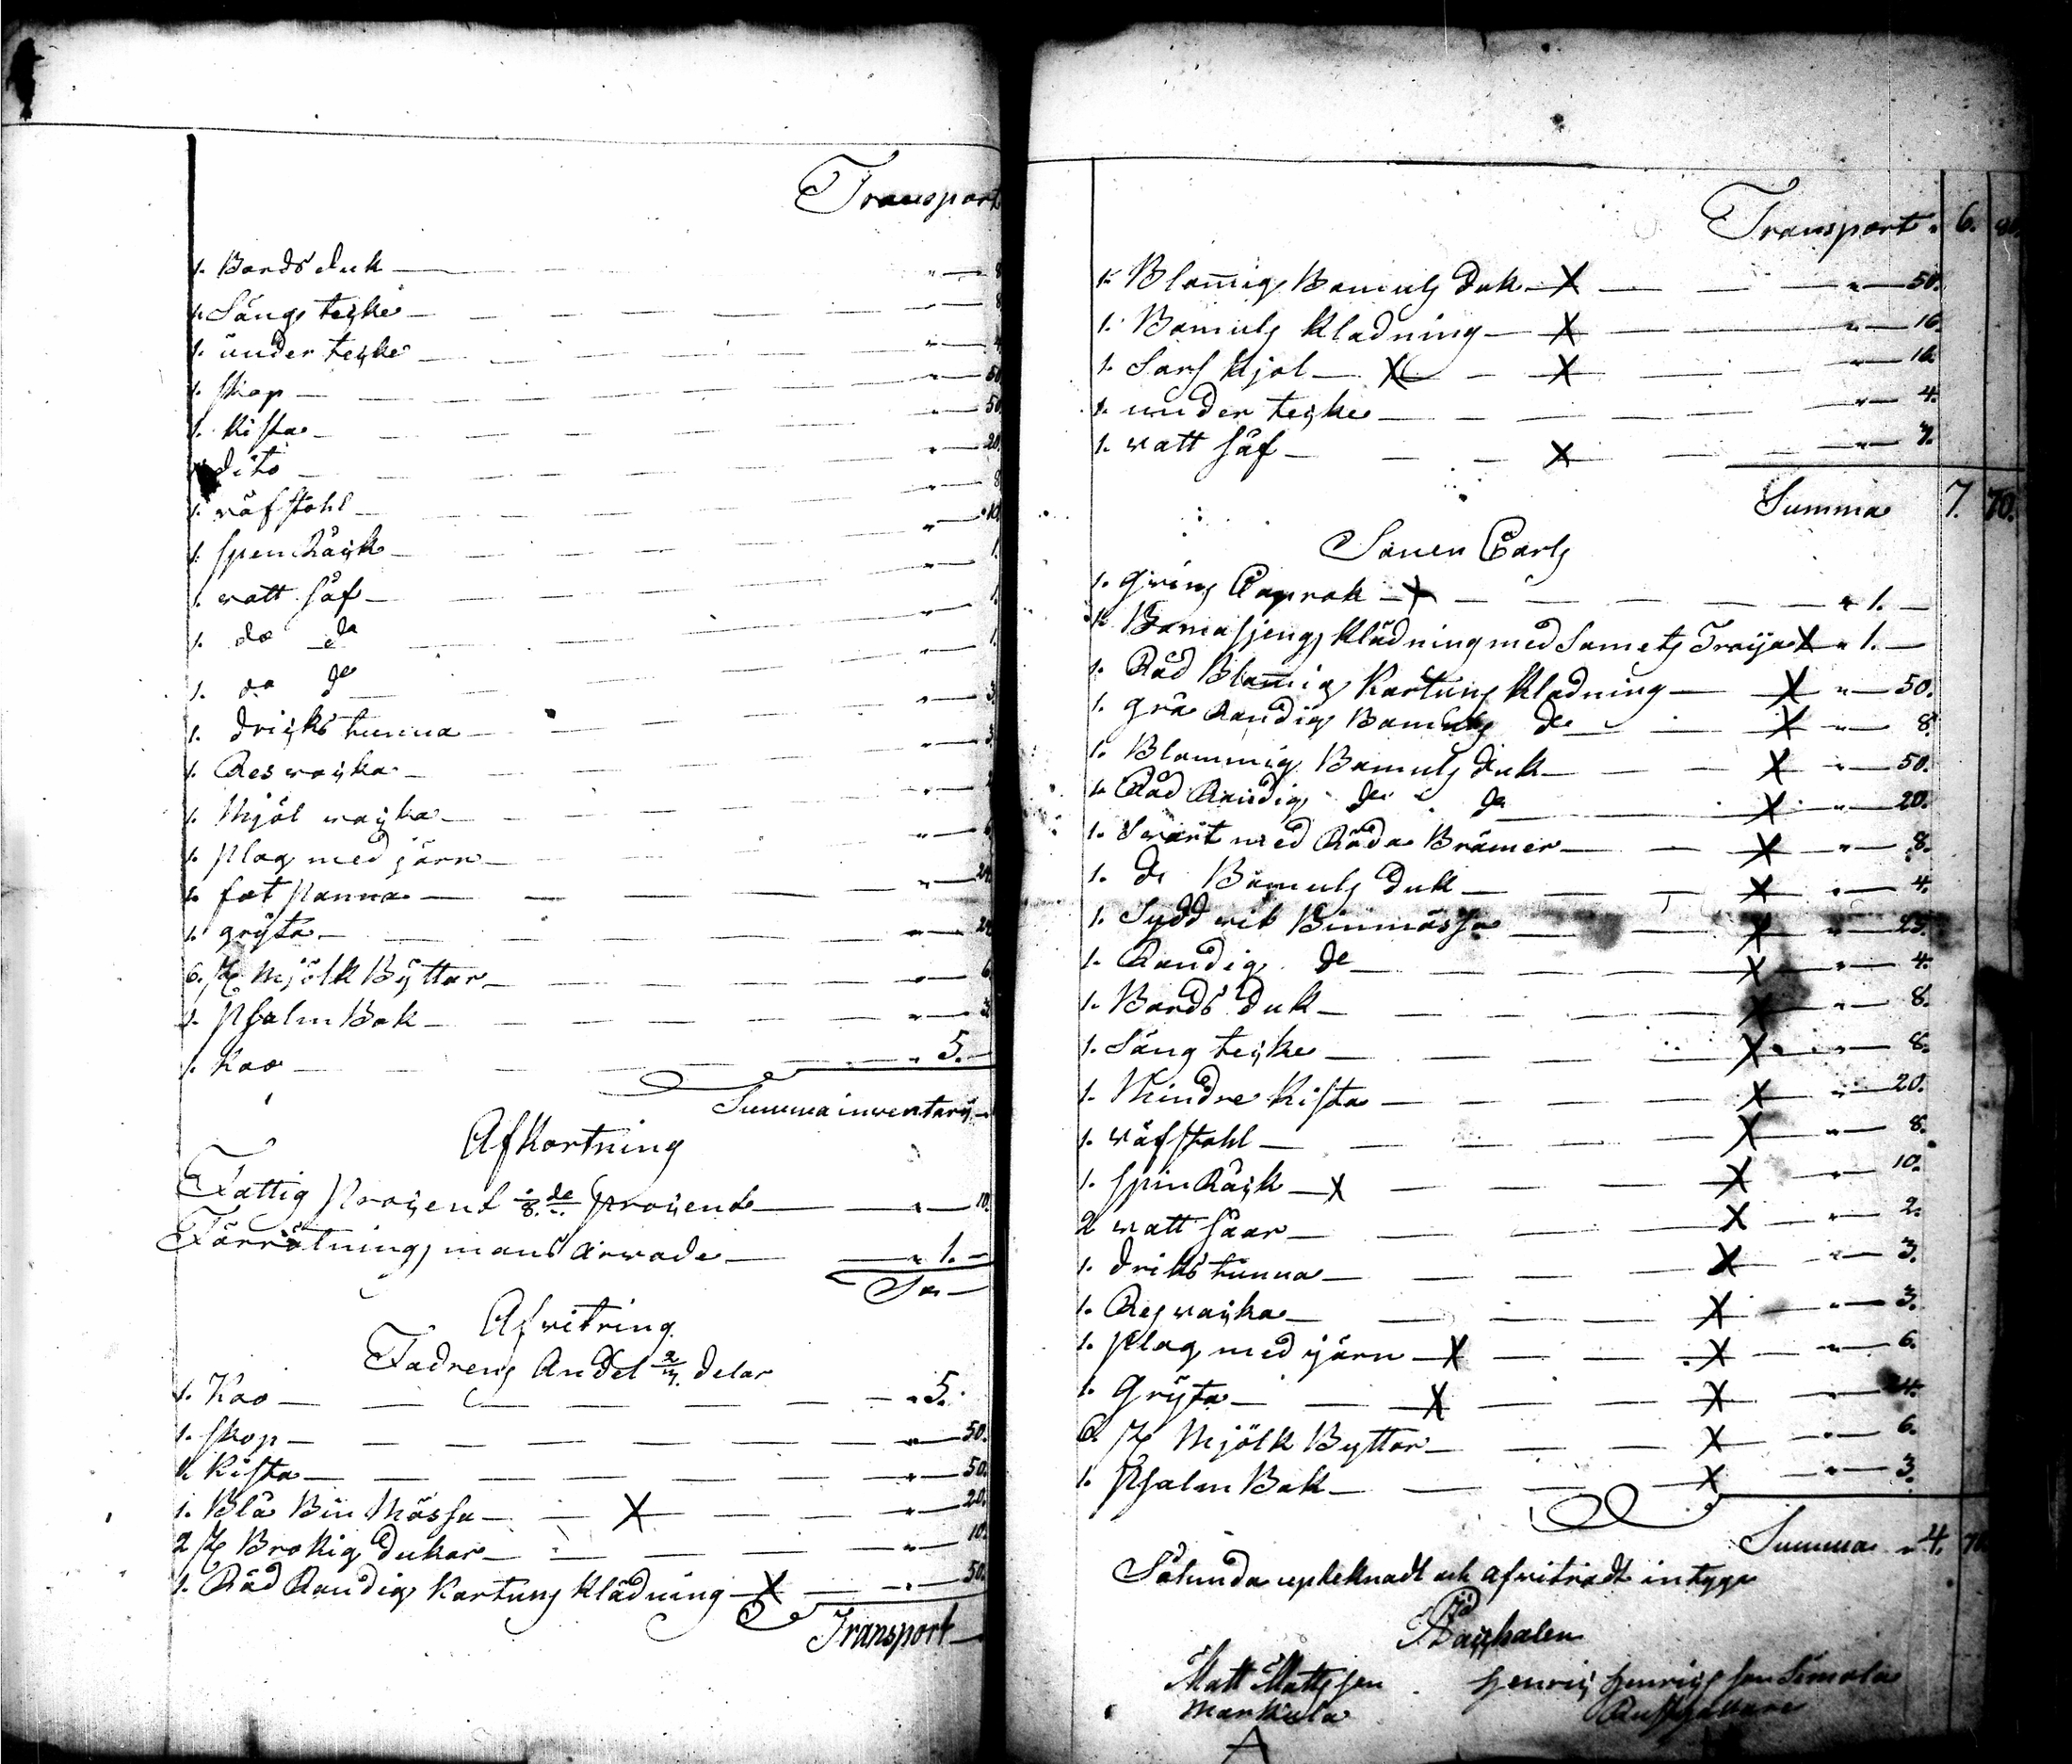 Transport
1. Bords duk — " — 8
1. Sängs teyke — " — 8
1. under teyke — " — 4
1. skop — " — 50
1. Kista — " — 50
1. dito — " — 20
1. väfstohl — " — 8
1. spen Råyk — " — 10
1. watt såf — " — 1.
1. do do — " — 1.
1. do do — " — 1.
1. driyks tunna — " — 3
1. Res wayka — " — 3.
1. Mjöl wayka —
1. plog med järn — " — 6
1. fot panna — " — 24.
1. gryta — " — 24
6. st Mjölk Byttor — " — 6
1. psalm Bok — " — 3
1. Koo — " 5. —
Summa inventarij. —
Afkortning
Fattig proyent 1/8 de proyent — " — 10.
Förrätningsmans arvode — " 1. —
Sa —
Afvitring
Fadrens Andel 2/3 delar
1. Koo — " 5.
1. skop — " — 50.
1. Kista — " — 50.
1. Blå Bin Mössa — X — " — 20.
2 st Brokig dukar — " — 10.
1. Råd Randig Kartuns Klädning — X — " — 50.
Transport —
Transport " 6. 80.
1. Blomig Bomuls duk — X — " — 50.
1. Bomuls Kladning — X — " — 16.
1. Sars Kjol — X — X — " — 16.
1. under teyke — " — 4.
1. watt såf — X — " — 7.
Summa 7. 70.
Sonen Carls
1. grins Caprok — X — " 1. —
1. Bomasjengs Klädning med Samets Tröya X " 1. —
1. Råd Blomig Kartuns Kladning — X " — 50.
1. grå Randig Bomuls do — X " — 8.
1. Blommig Bomuls duk — X " — 50.
1. Råd Randig do do — X " — 20.
1. Swart med Råda Brämer — X " — 8.
1. do Bomuls duk — X " — 4.
1. Sydd vit Binmössa — X " — 25.
1. Randig do — X " — 4.
1. Bords duk — X " — 8.
1. Säng teyke — X " — 8.
1. Mindre Kista — X " — 20.
1. väfstohl — X " — 8.
1. spin Råyk — X — X " — 10.
2 watt såar — X " — 2.
1. driks tunna — X " — 3.
1. Res wayka — X " — 3.
1. plog med järn — X — X " — 6.
1. Gryta — X — X " — 24.
6. st Mjölk Byttor — X " — 6.
1. psalm Bok — X " — 3.
Summa " 4. 70
Sålunda upteknadt och afvitradt intyga
Matt Mattsson
Henrik Henriksson Simola
Markula